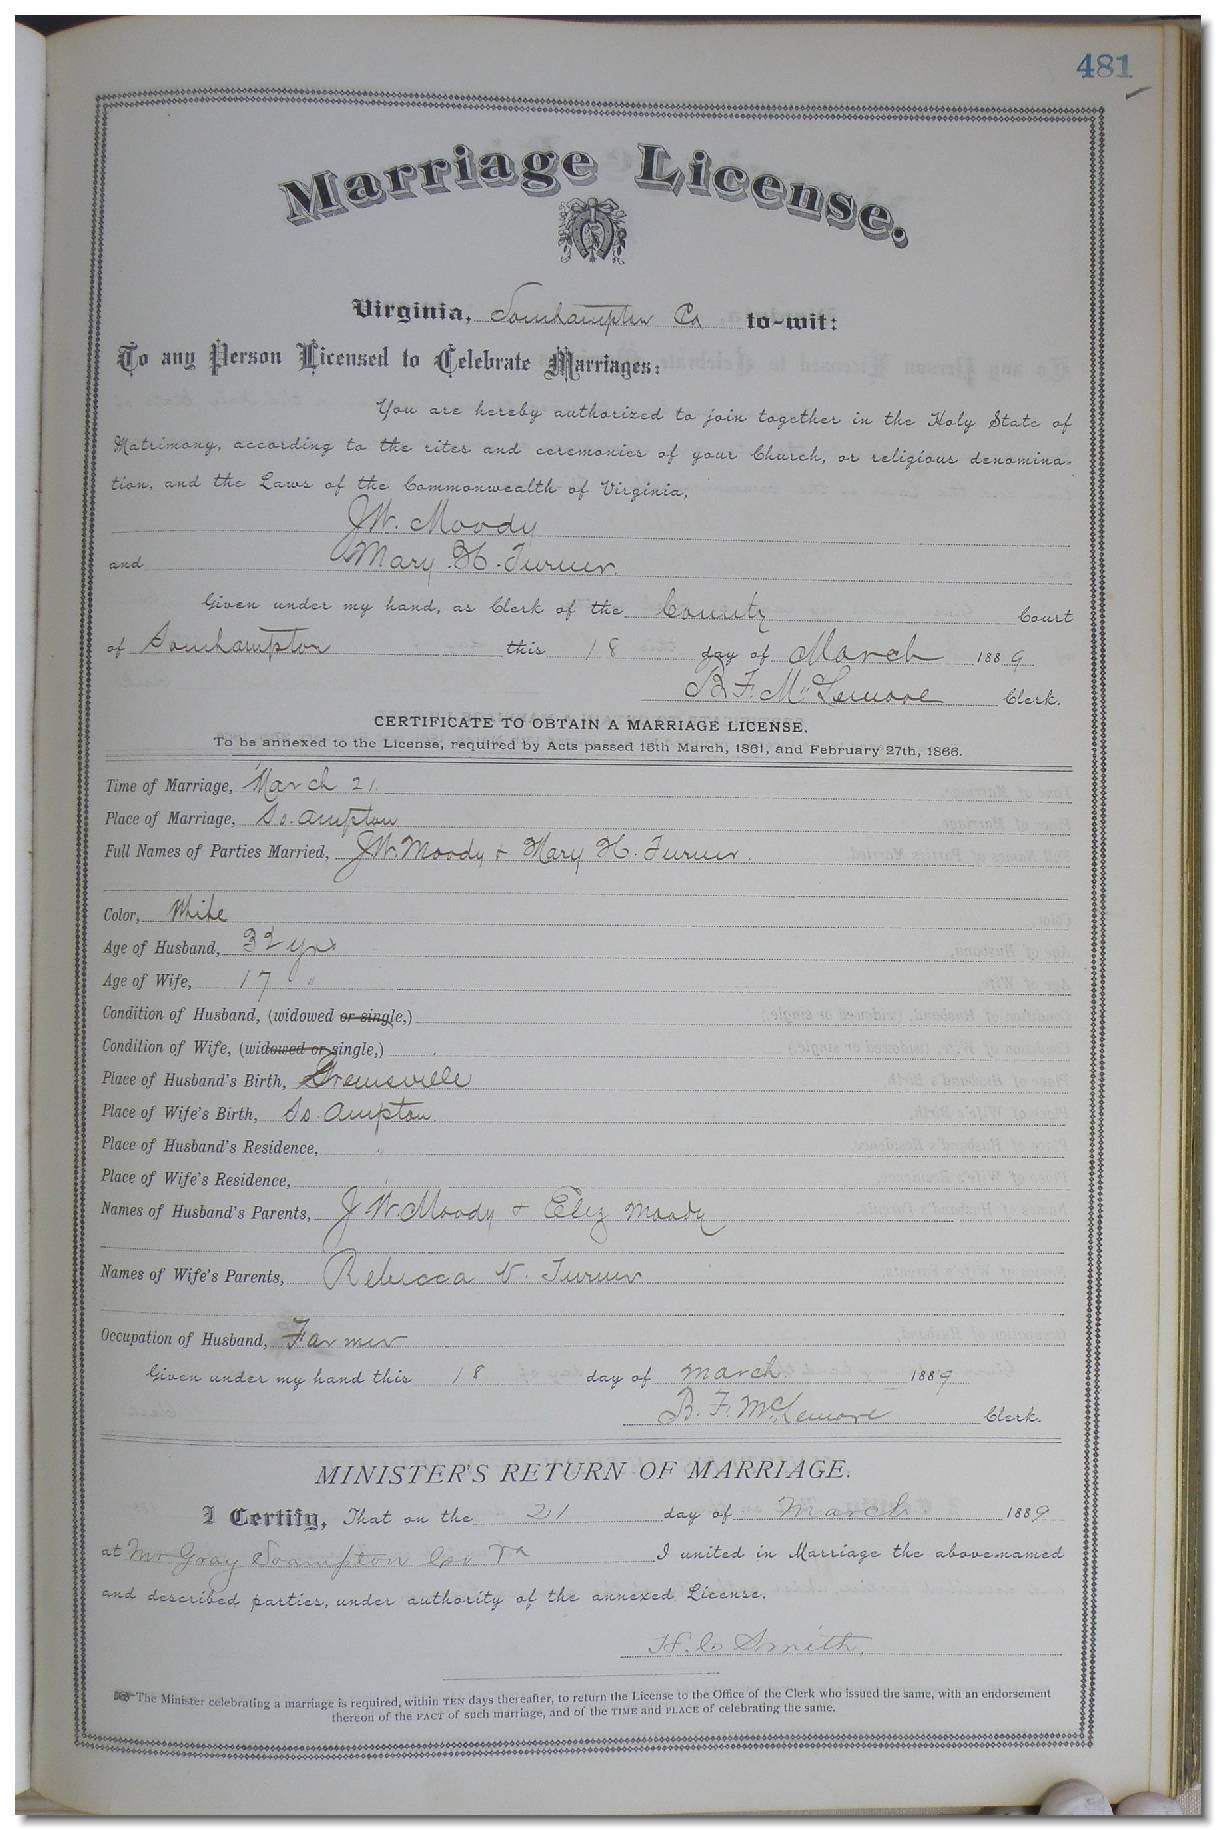 481
Marriage License.
Virginia, Southampton Co to-wit:
To any Person Licensed to Celebrate Marriages:
You are hereby authorized to join together in the Holy State of
Matrimony, according to the rites and ceremonies of your Church, or religious denomina-
tion, and the Laws of the Commonwealth of Virginia,
J.W. Moody
and Mary H. Turner.
Given under my hand, as Clerk of the County Court
of Southampton this 18 day of March 1889
B. F. McLemore Clerk.
CERTIFICATE TO OBTAIN A MARRIAGE LICENSE.
To be annexed to the License, required by Acts passed 15th March, 1861, and February 27th, 1866.
Time of Marriage, March 21.
Place of Marriage, So. ampton
Full Names of Parties Married, J.W. Moody + Mary H. Turner.
Color, White
Age of Husband, 32 yrs
Age of Wife, 17 "
Condition of Husband, (widowed or single,)
Condition of Wife, (widowed or single,)
Place of Husband's Birth, Greensville
Place of Wife's Birth, So. ampton
Place of Husband's Residence, "
Place of Wife's Residence,
Names of Husband's Parents, J. W. Moody + Eliz Moody
Names of Wife's Parents, Rebecca V. Turner
Occupation of Husband, Farmer
Given under my hand this 18 day of March 1889
B. F. McLemore Clerk.
MINISTER'S RETURN OF MARRIAGE.
I Certify, That on the 21 day of March 1889
at Mr. Gray Soampton Co. Va I united in Marriage the above-named
and described parties, under authority of the annexed License.
H. C. Smith.
The Minister celebrating a marriage is required, within TEN days thereafter, to return the License to the Office of the Clerk who issued the same, with an endorsement
thereon of the FACT of such marriage, and of the TIME and PLACE of celebrating the same.